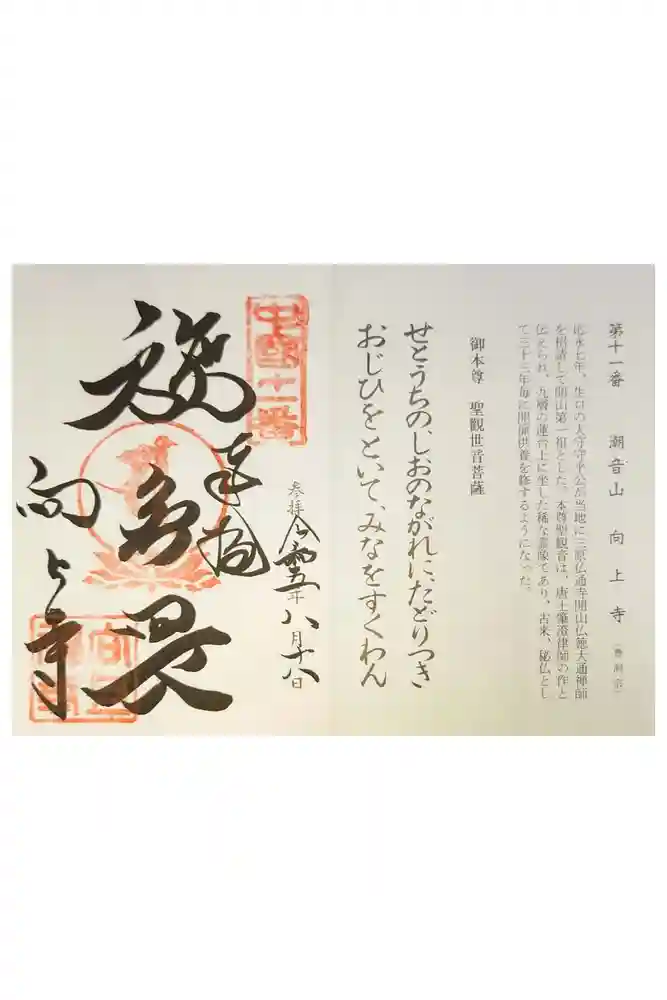 第十一番 潮音山 向上寺 (曹洞宗)
応永七年、生口の大守守平公が当地に三原仏通寺開山仏徳大通禅師
を招請して開山第一祖とした。本尊聖観音は、唐土肇澄律師の作と
伝えられ、九層の蓮台上に坐した稀な霊像であり、古来、秘仏とし
て三十三年毎に開扉供養を修するようになった。
御本尊 聖観世音菩薩
せとうちの、しおのながれに、たどりつき
おじひをといて、みなをすくわん
中国十一番
奉拝
参拝 令和五年八月十八日
施無畏
向上寺